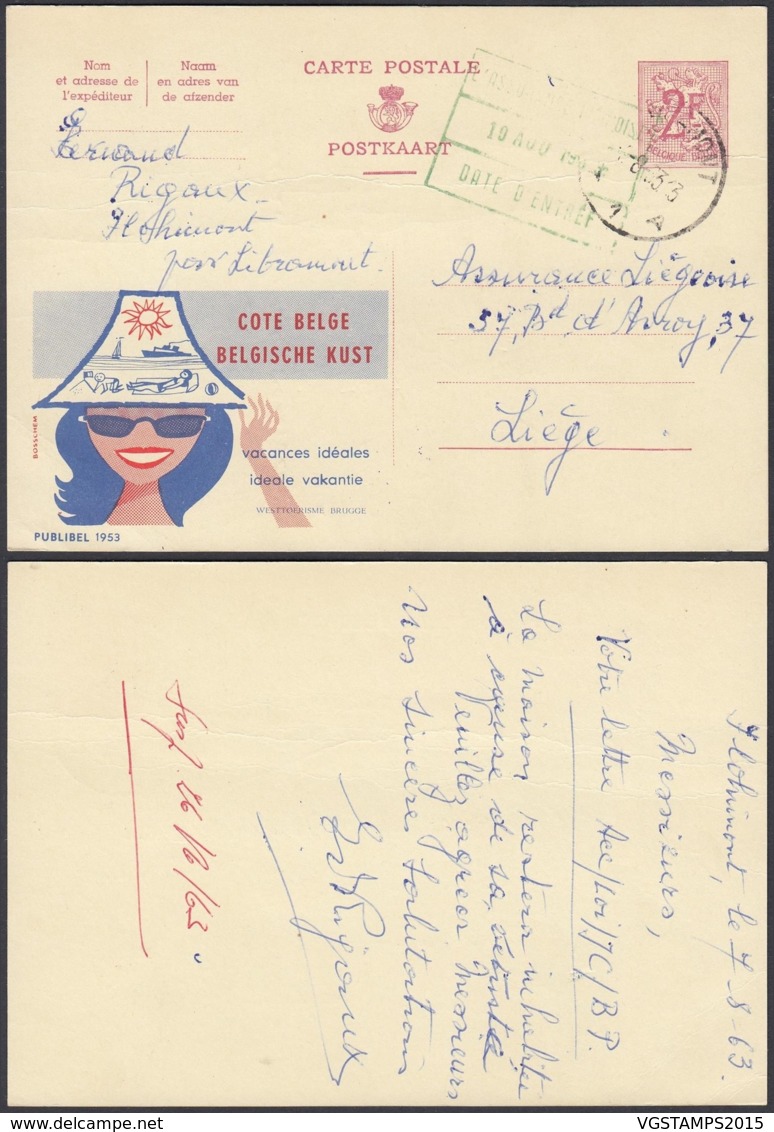 Nom
et adresse de
l'expéditeur
Naam
en adres van
de afzender
CARTE POSTALE
POSTKAART
2F
BELGIQUE
10 AOU 196
DATE D'ENTRÉE
1 A
Fernand
Rigaux
Flohimont
par Libramont
Assurance Liégeoise
37, Bd d'Avroy, 37
Liège
COTE BELGE
BELGISCHE KUST
vacances idéales
ideale vakantie
WESTTOERISME BRUGGE
BOSSCHEM
PUBLIBEL 1953
Flohimont, le 7-8-63.
Messieurs,
Votre lettre Acc/Loi/JC/BP.
La maison restera inhabitée
à cause de sa vétusté
Veuillez agréer Messieurs
Nos sincères salutations
Rigaux
VGSTAMPS2015